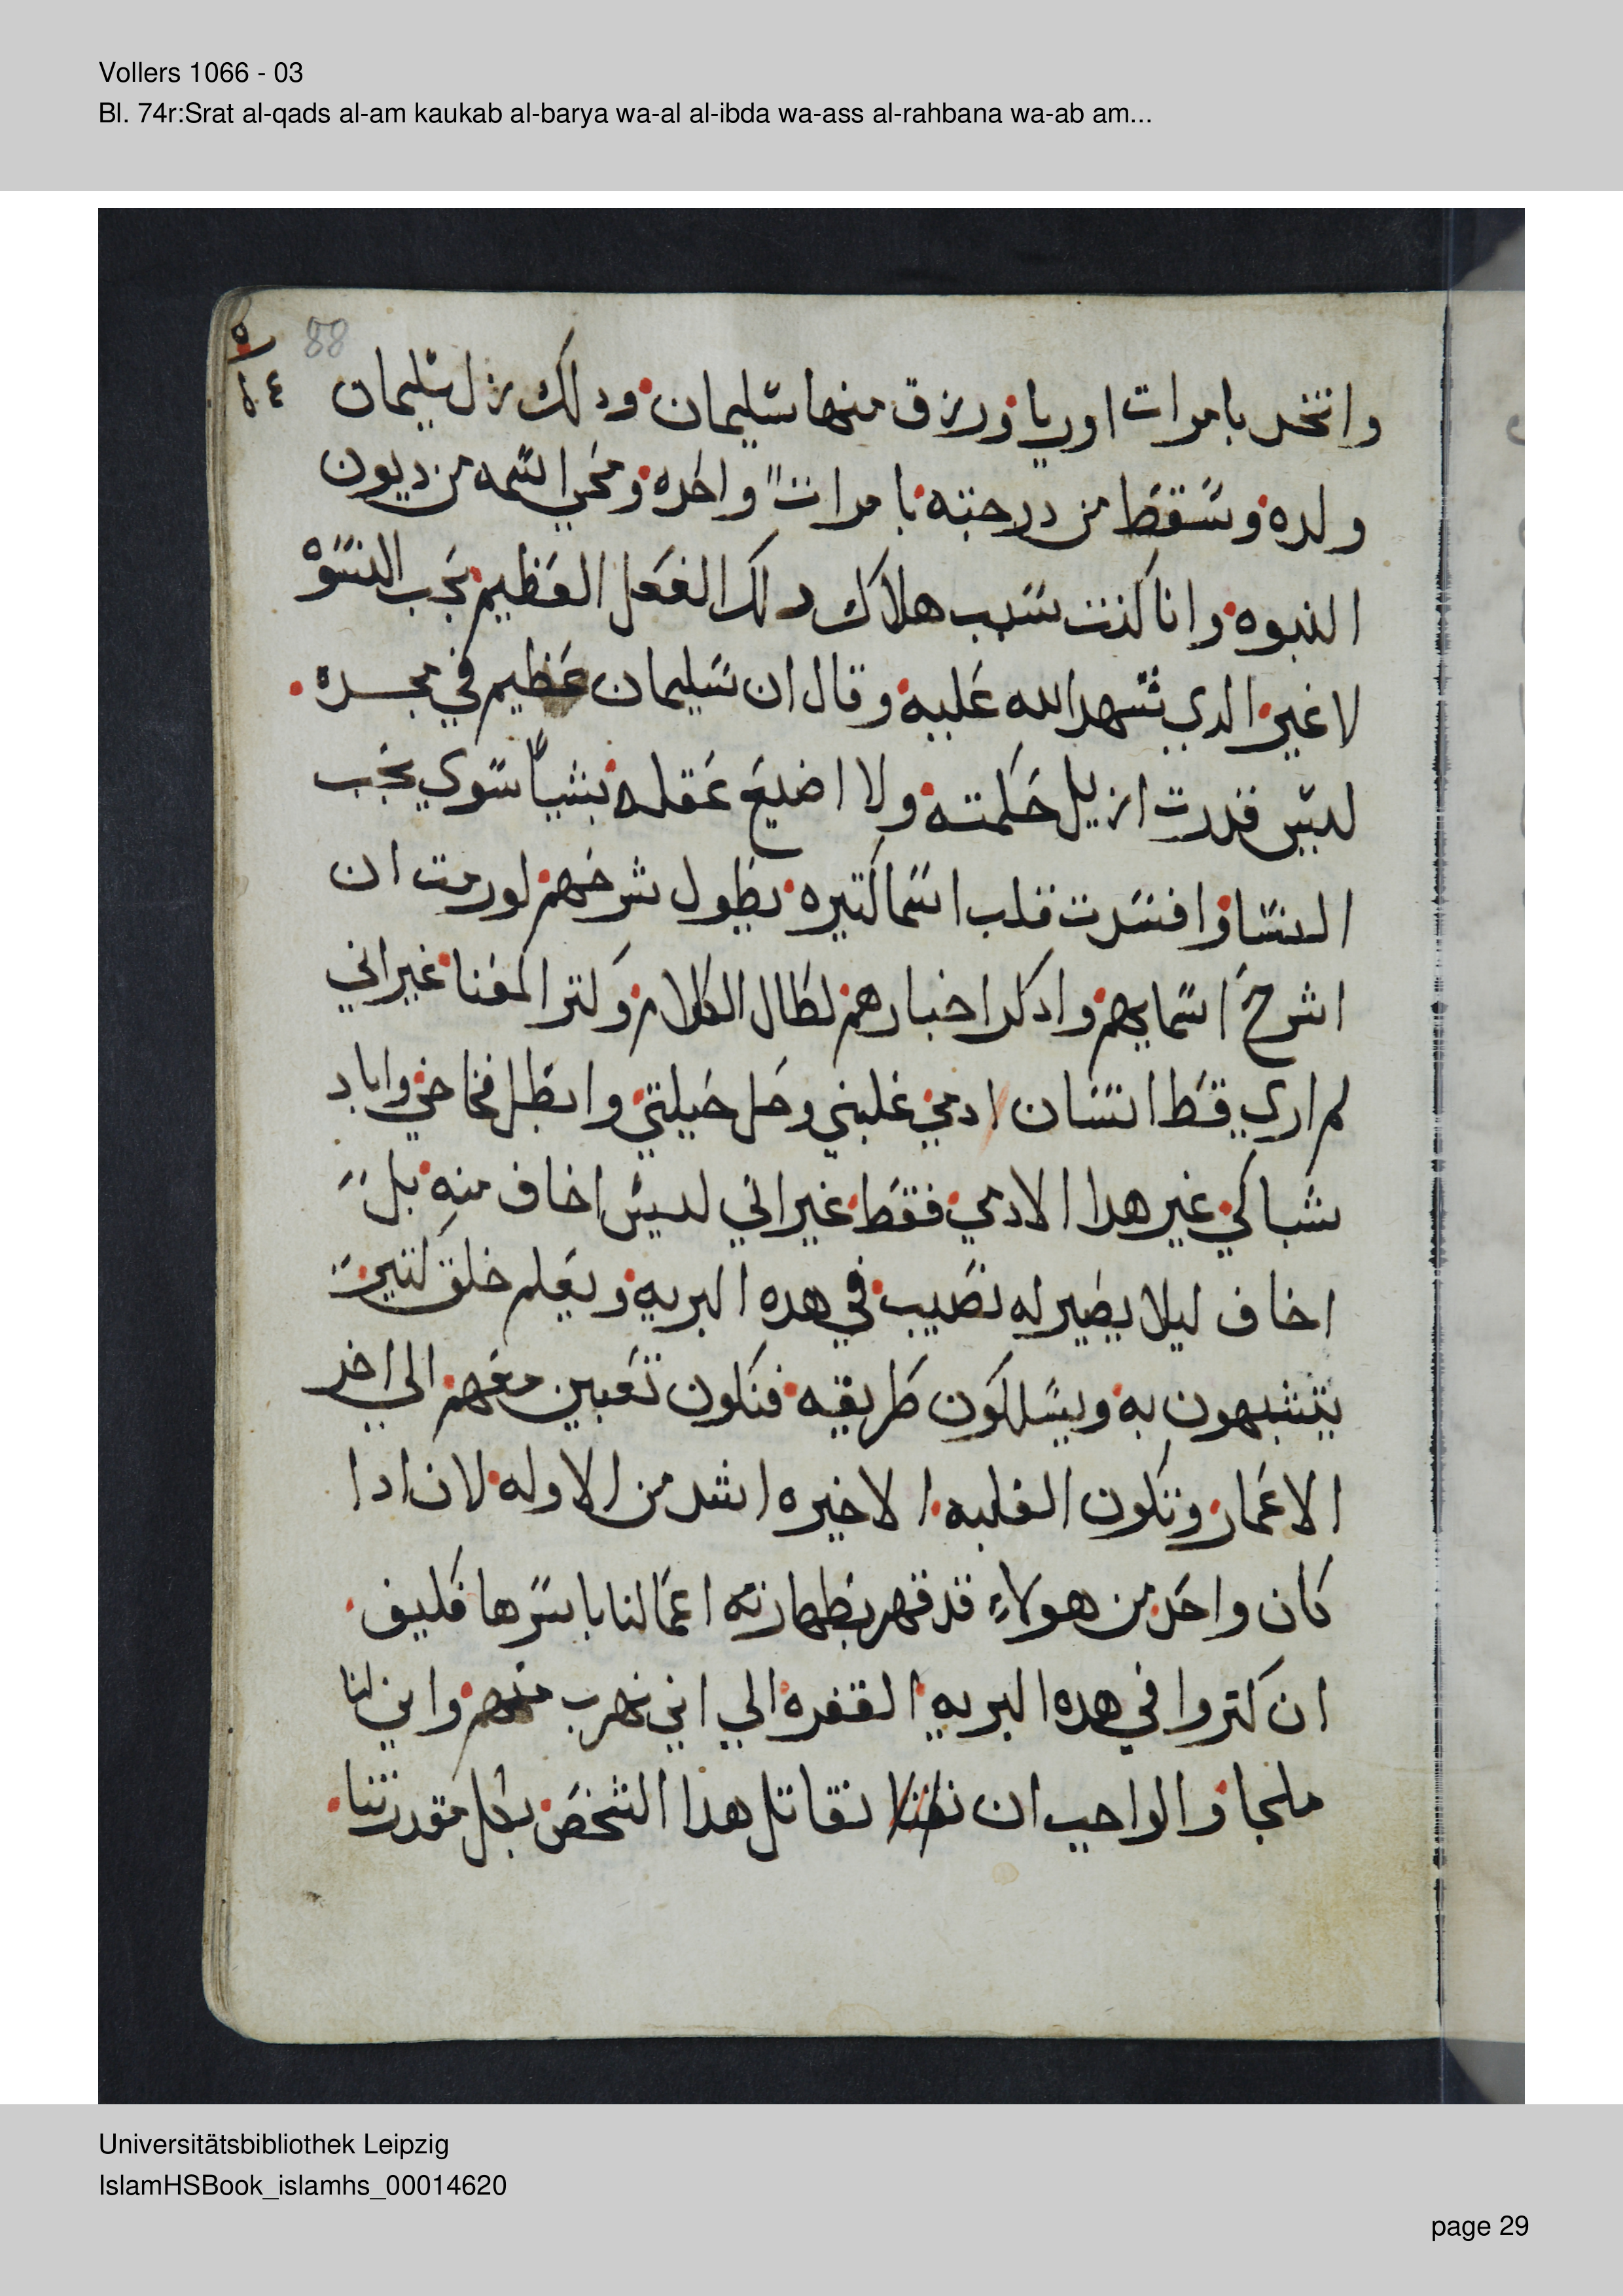 Vollers 1066 - 03
Bl. 74r:Srat al-qads al-am kaukab al-barya wa-al al-ibda wa-ass al-rahbana wa-ab am...
88
واتخد بامرات اوريا ورزق منها سليمان ودلك زل سليمان
ولده وسقط من درجته بامرات واحده ومحي اسمه من ديون
النبوه وانا كنت سبب هلاك دلك الفعل العظيم بحب النسوه
لاغير الدي شهد الله عليه وقال ان سليمان عظيم في مجده
ليس قدرت ازيل حكمته ولا اضيع عقله بشيا سوي بحب
النسا وافسدت قلب اسما كتيره يطول شرحهم لو رمت ان
اشرح اسمايهم وادكر اخبارهم لطال الكلام وكتر المعنا غير اني
لم اري قط انسان ادمي غلبني وحل حيلتي وابطل فخاخي واباد
شباكي غير هدا الادمي فقط غير اني ليس اخاف منه بل
اخاف ليلا يصير له نصيب في هده البريه ويعلم خلق كتير
يتشبهون به ويسلكون طريقه فنكون تعبين معهم الي اخر
الاعمار وتكون الغلبه الاخيره اشد من الاوله لان ادا
كان واحد من هولاء قد قهر بطهارته اعمالنا باسرها فكيف
ان كتروا في هده البريه القفره الي اين نهرب منهم واين لنا
ملجا والواجب ان نقاتل هدا الشخص بكل مقدرتنا
Universitätsbibliothek Leipzig
IslamHSBook_islamhs_00014620
page 29